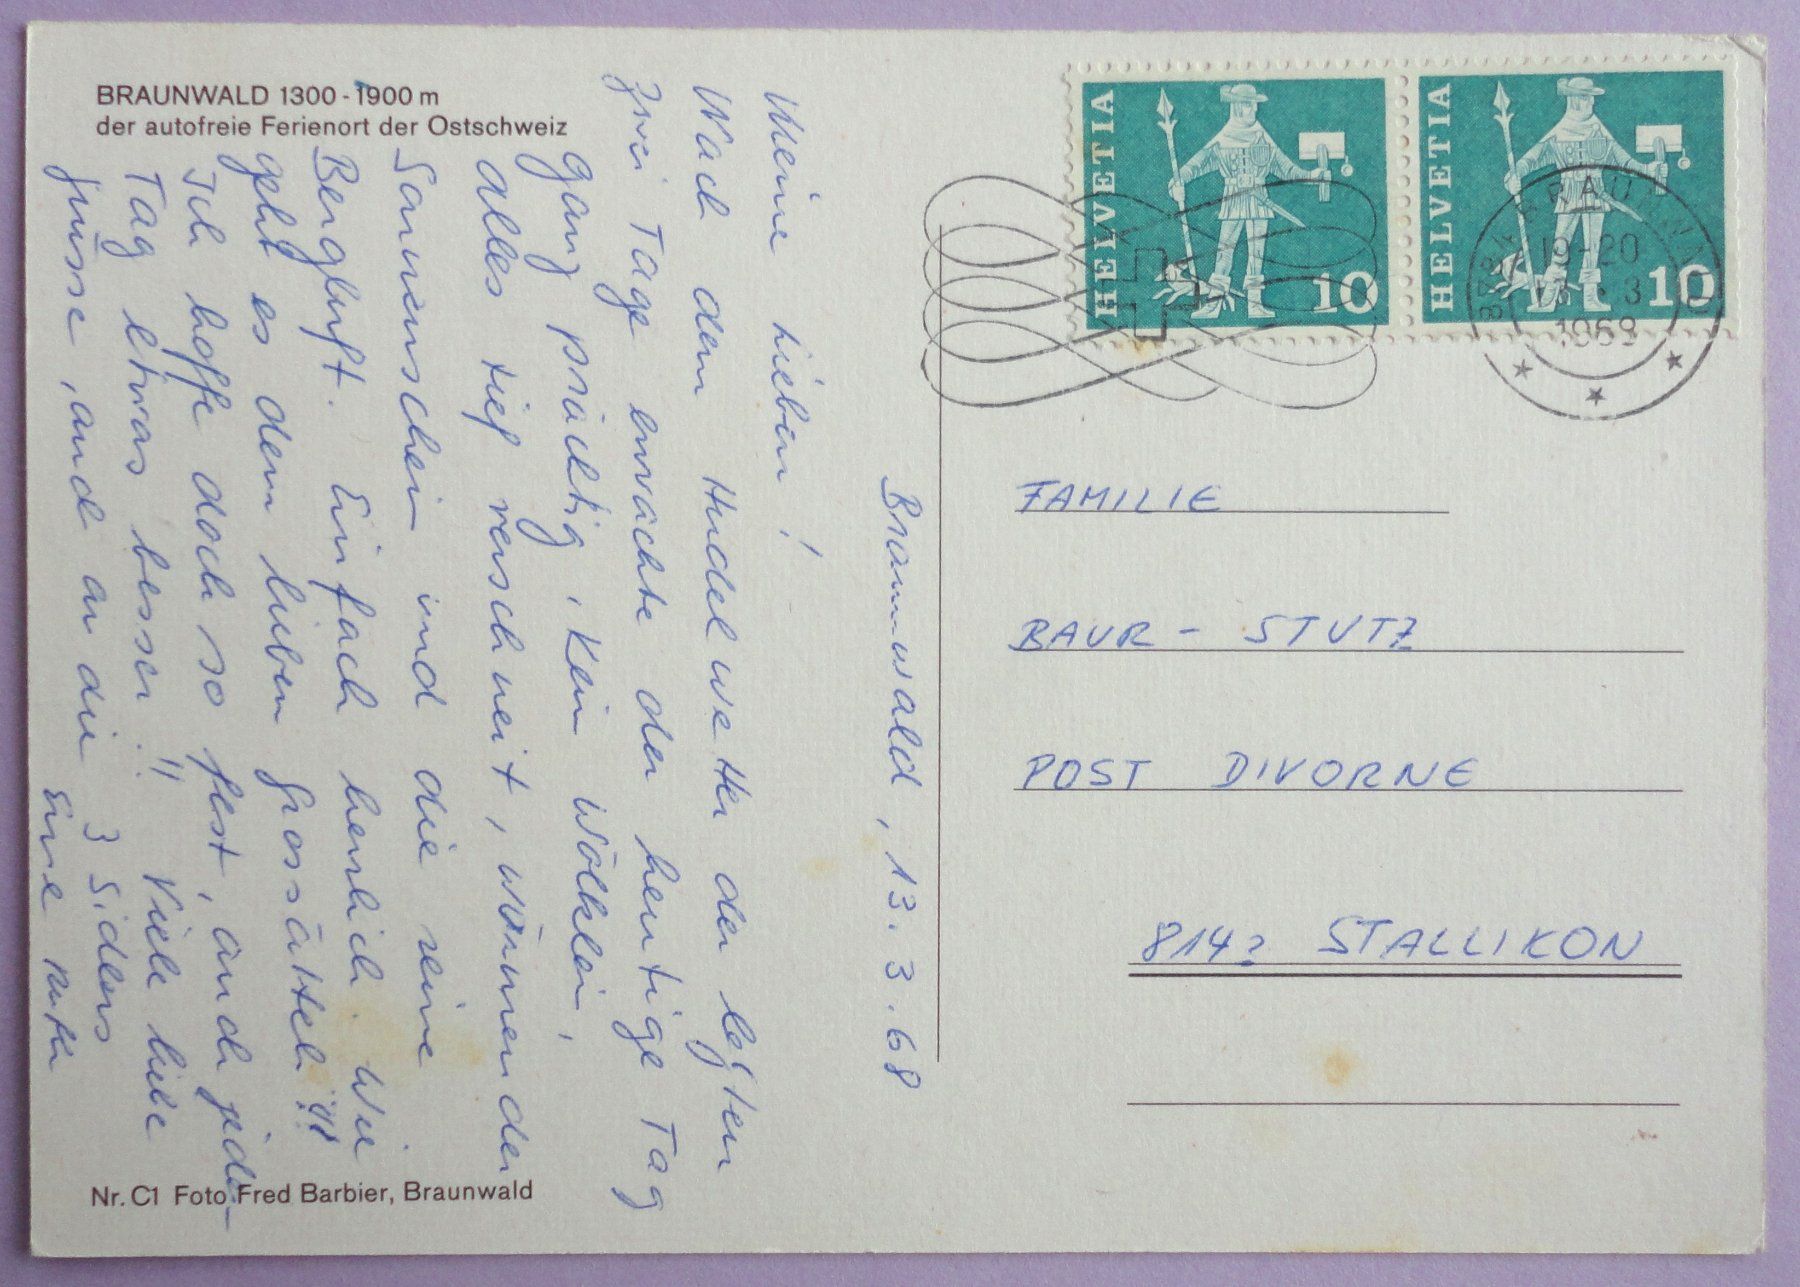 BRAUNWALD 1300 - 1900 m
der autofreie Ferienort der Ostschweiz
Braunwald, 13. 3. 68
Meine Lieben!
Nach dem Hudelwetter der letzten
zwei Tage erwachte der heutige Tag
ganz prächtig, Kein Wölklein,
alles tief verschneit, wärmender
Sonnenschein und die reine
Bergluft. Einfach herrlich. Wie
geht es dem lieben Grossätteli!!!
Ich hoffe doch so fest, auch jeden
Tag etwas besser!! Viele liebe
Grüsse, auch an die 3 Siders
Eure Ruth
Nr. C1 Foto Fred Barbier, Braunwald
HELVETIA 10
HELVETIA 10
8784 BRAUNWALD
19-20
3
1968
FAMILIE
BAUR - STUTZ
POST DIVORNE
8142 STALLIKON